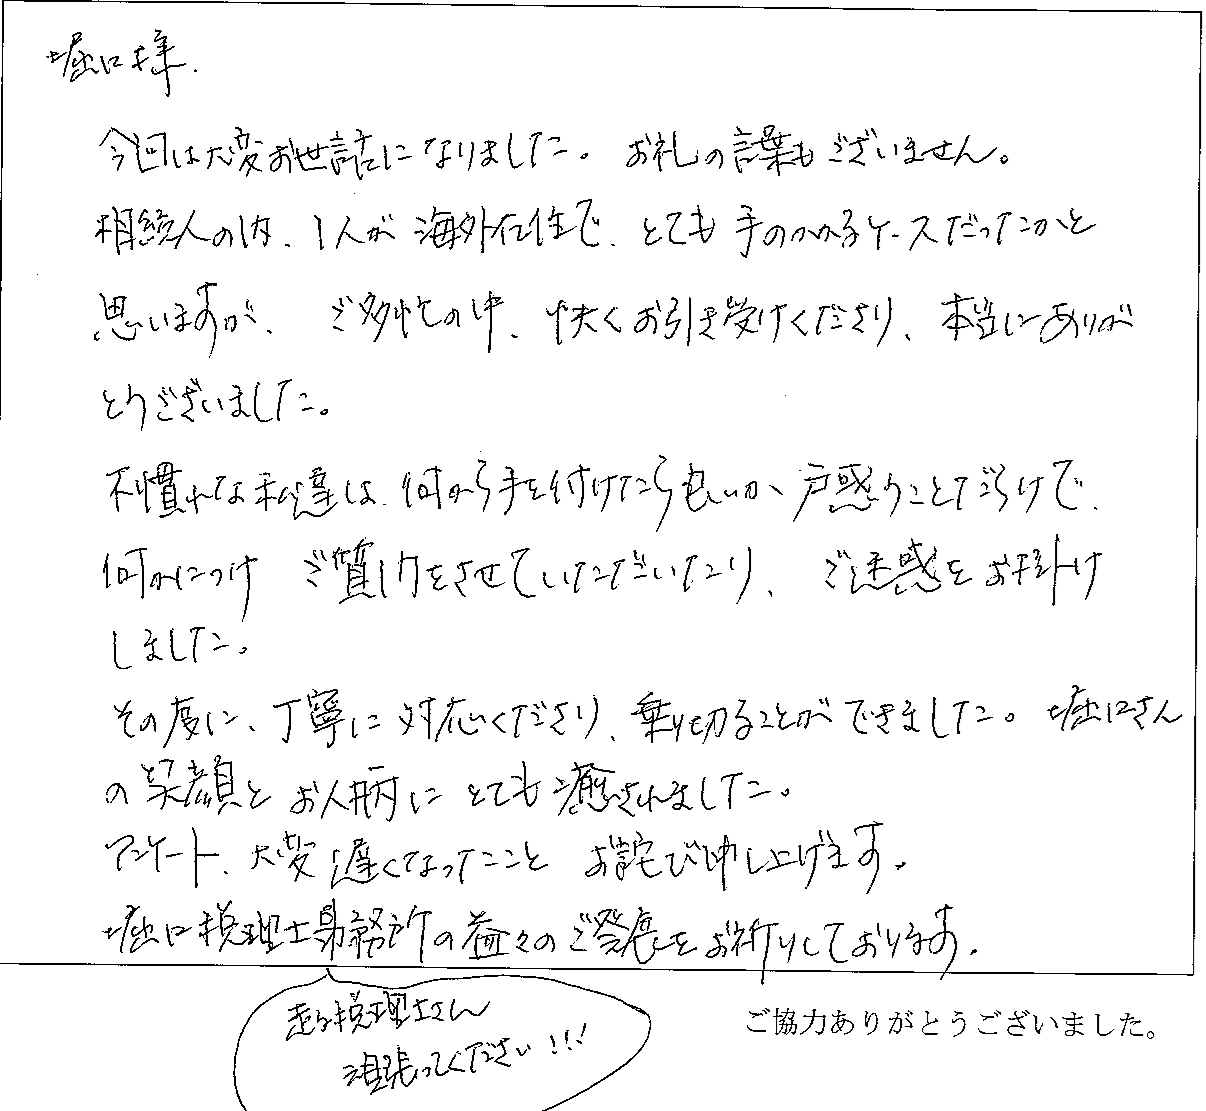 堀口様.
今回は大変お世話になりました。お礼の言葉もございません。
相続人の内、1人が海外在住で、とても手のかかるケースだったかと
思いますが、ご多忙の中、快くお引き受けくださり、本当にありが
とうございました。
不慣れな私達は、何から手を付けたら良いか、戸惑うことだらけで、
何かにつけ ご質問をさせていただいたり、ご迷惑をお掛け
しました。
その度に、丁寧に対応くださり、乗り切ることができました。堀口さん
の笑顔とお人柄にとても癒されました。
アンケート、大変遅くなったことお詫び申し上げます。
堀口税理士事務所の益々のご発展をお祈りしております。
走る税理士さん
頑張ってください!!!
ご協力ありがとうございました。